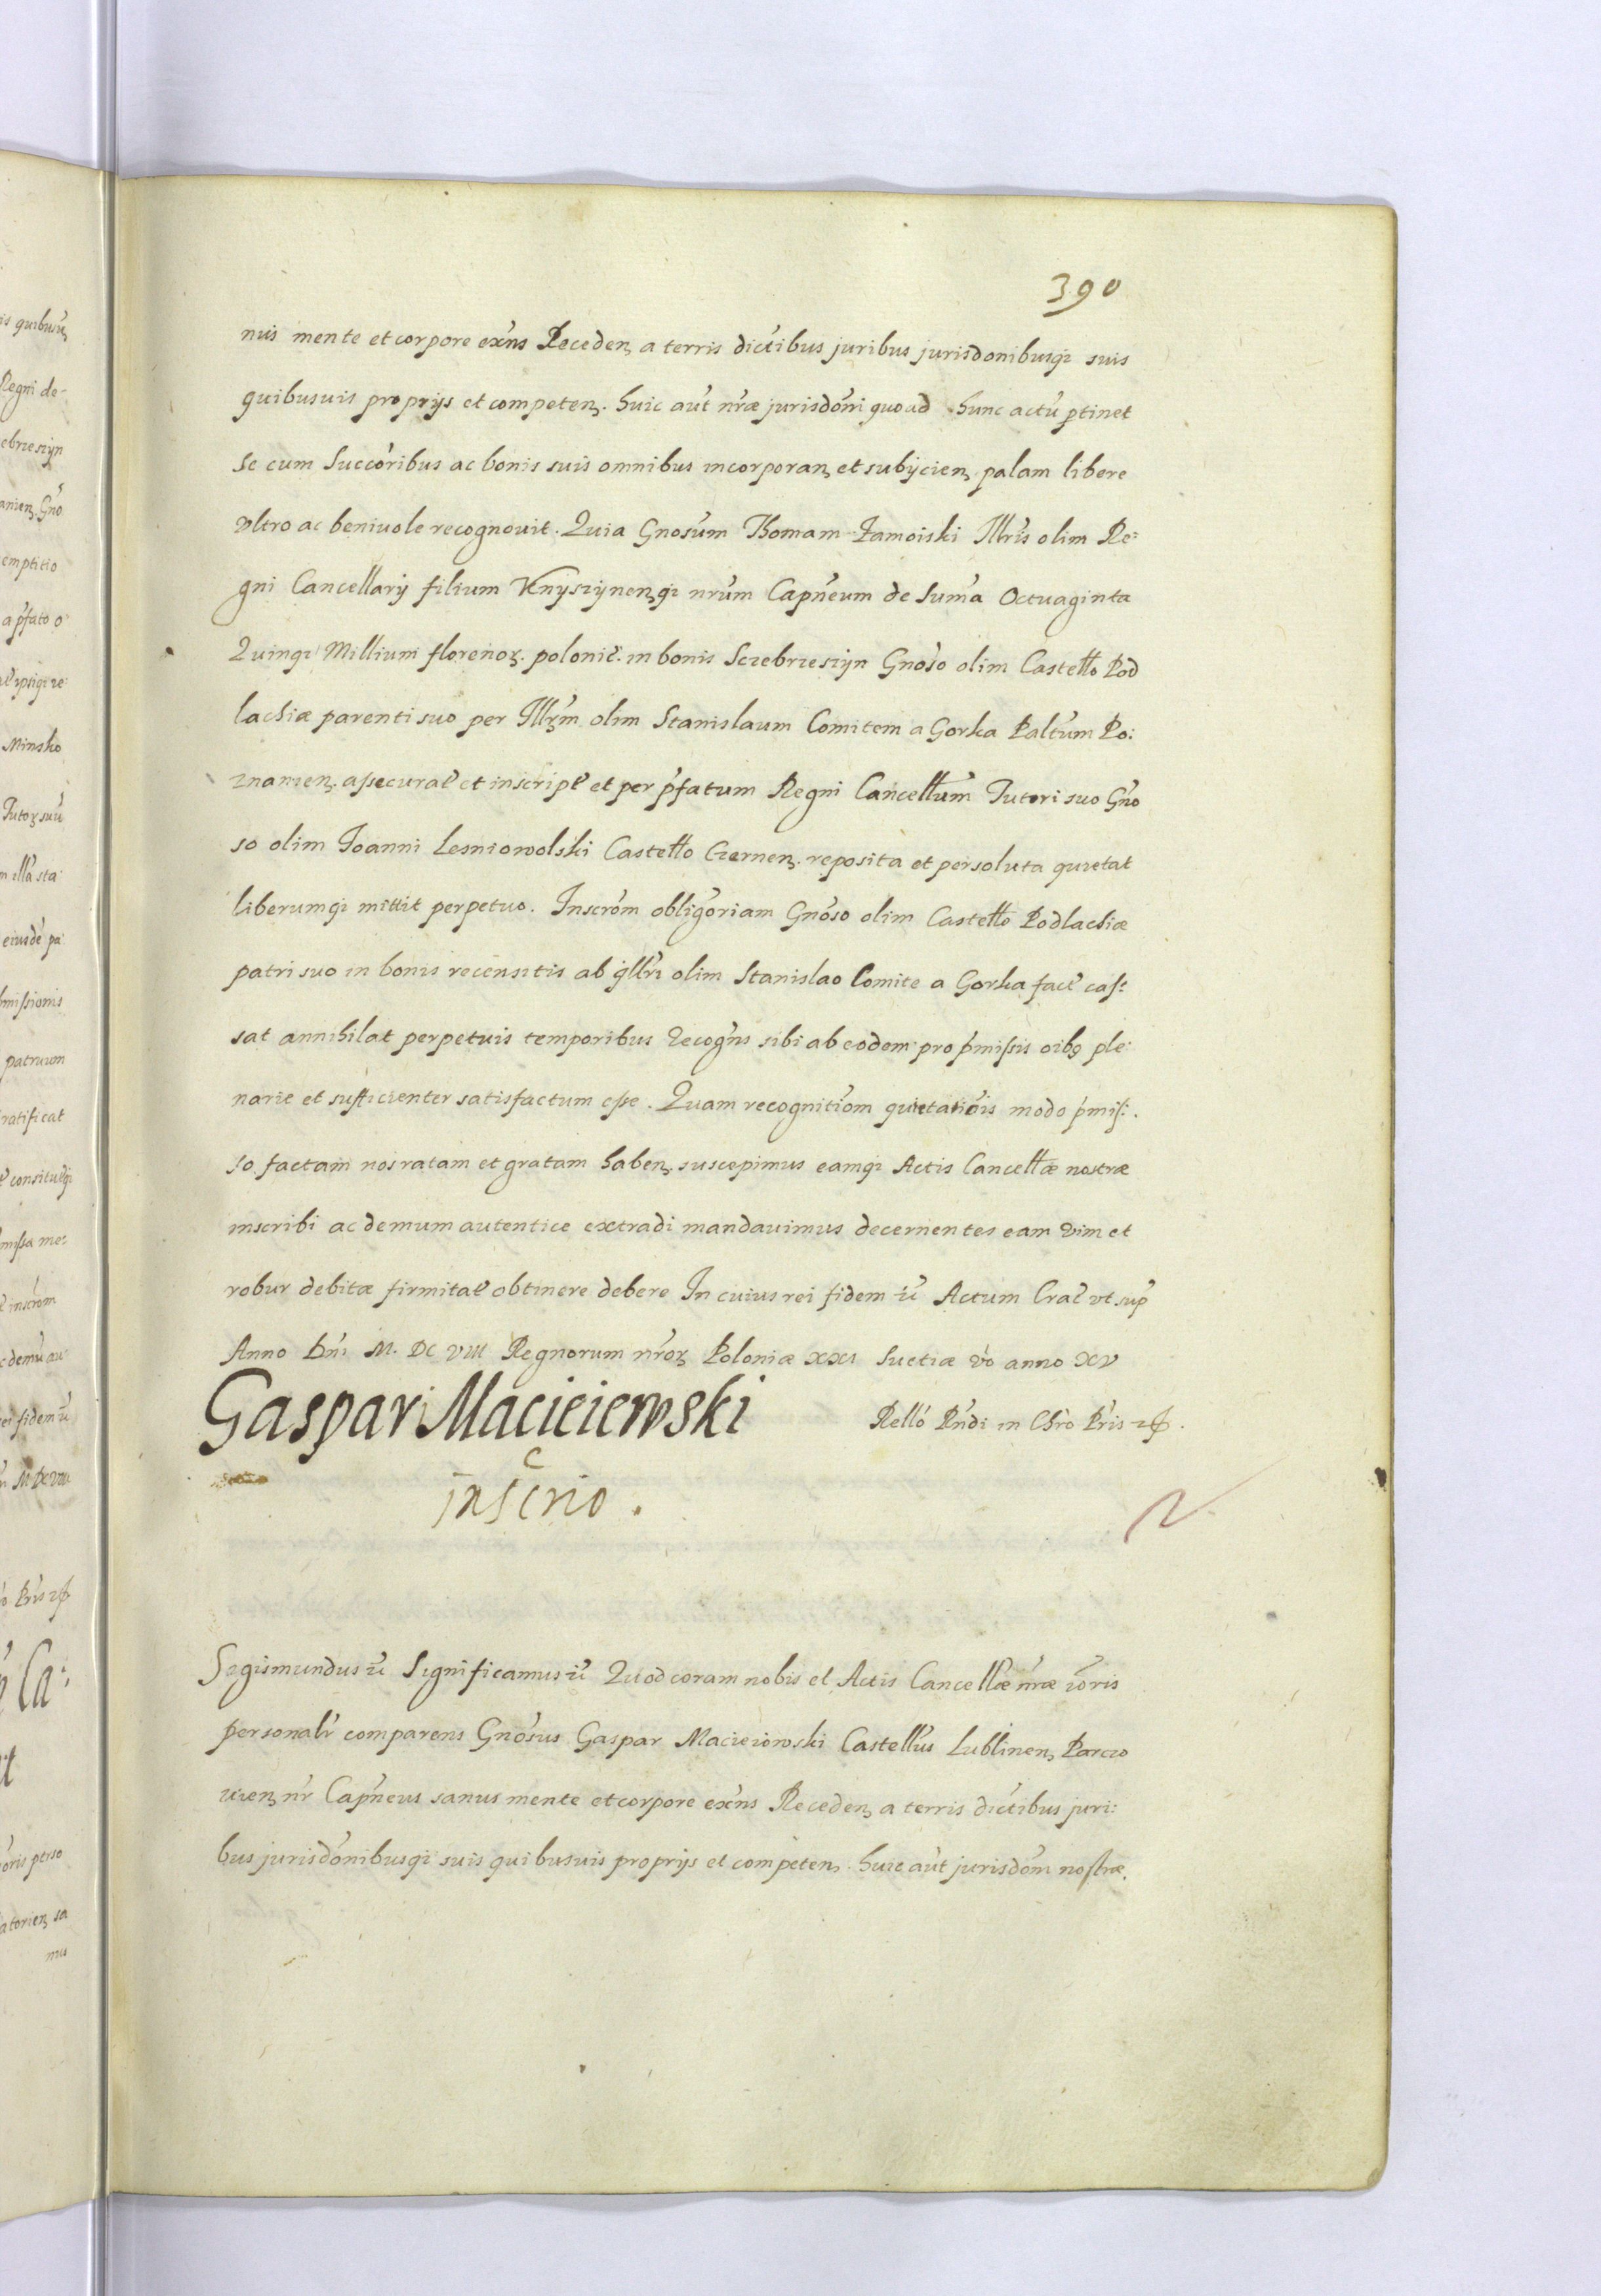 390
nus mente et corpore exñs Receden. a terris dictibus juribus jurisdonibusq; suis
quibusuis proprijs et competen. huic aut nræ jurisdoñi quoad hunc actū ptinet
se cum Succoribus ac bonis suis omnibus incorporan. et subijcien. palam libere
vltro ac beniuole recognouit. Quia Gnosum Thomam Zamoiski Illris olim Re:
gni Cancellarij filium Knyszynen.q; nrum Capneum de Suma Octuaginta
Quinq; Millium florenor. polonic. in bonis Sczebrzeszyn Gnoso olim Castello Pod
lachiæ parenti suo per Illrm olim Stanislaum Comitem a Gorka Paltum Po:
znanien. assecurat et inscript et per pfatum Regni Cancellum Tutori suo Gno
so olim Joanni Lesniowolski Castello Czernen. reposita et persoluta quietat
liberumq; mittit perpetuo. Inscrom obligoriam Gnoso olim Castello Podlachiæ
patri suo in bonis recensitis ab illri olim Stanislao Comite a Gorka fact cas:
sat annihilat perpetuis temporibus Recogns sibi ab eodem pro pmissis oibq ple:
narie et sufficienter satisfactum esse. Quam recognitiom quietationis modo pmis:
so factam nos ratam et gratam haben. suscepimus eamq; Actis Cancellæ nostræ
inscribi ac demum autentice extradi mandauimus decernentes eam vim et
robur debitæ firmitat obtinere debere In cuius rei fidem ꝛc Actum Crac vt sup
Anno Dni M. DC VIII Regnorum nror. Poloniæ XXI Suetiæ vo anno XV
Gaspar Macieiewski Rello Rndi in Chro Pris ꝛc.
inscrio.
Sigismundus ꝛc Significamus ꝛc Quod coram nobis et Actis Cancellæ nræ ioris
personalr comparens Gnosus Gaspar Macieiowski Castellus Lublinen. Parczo
uien. nr Capneus sanus mente et corpore exñs Receden. a terris dictibus juri:
bus jurisdonibusq; suis quibusuis proprijs et competen. huic aut jurisdom nostræ.